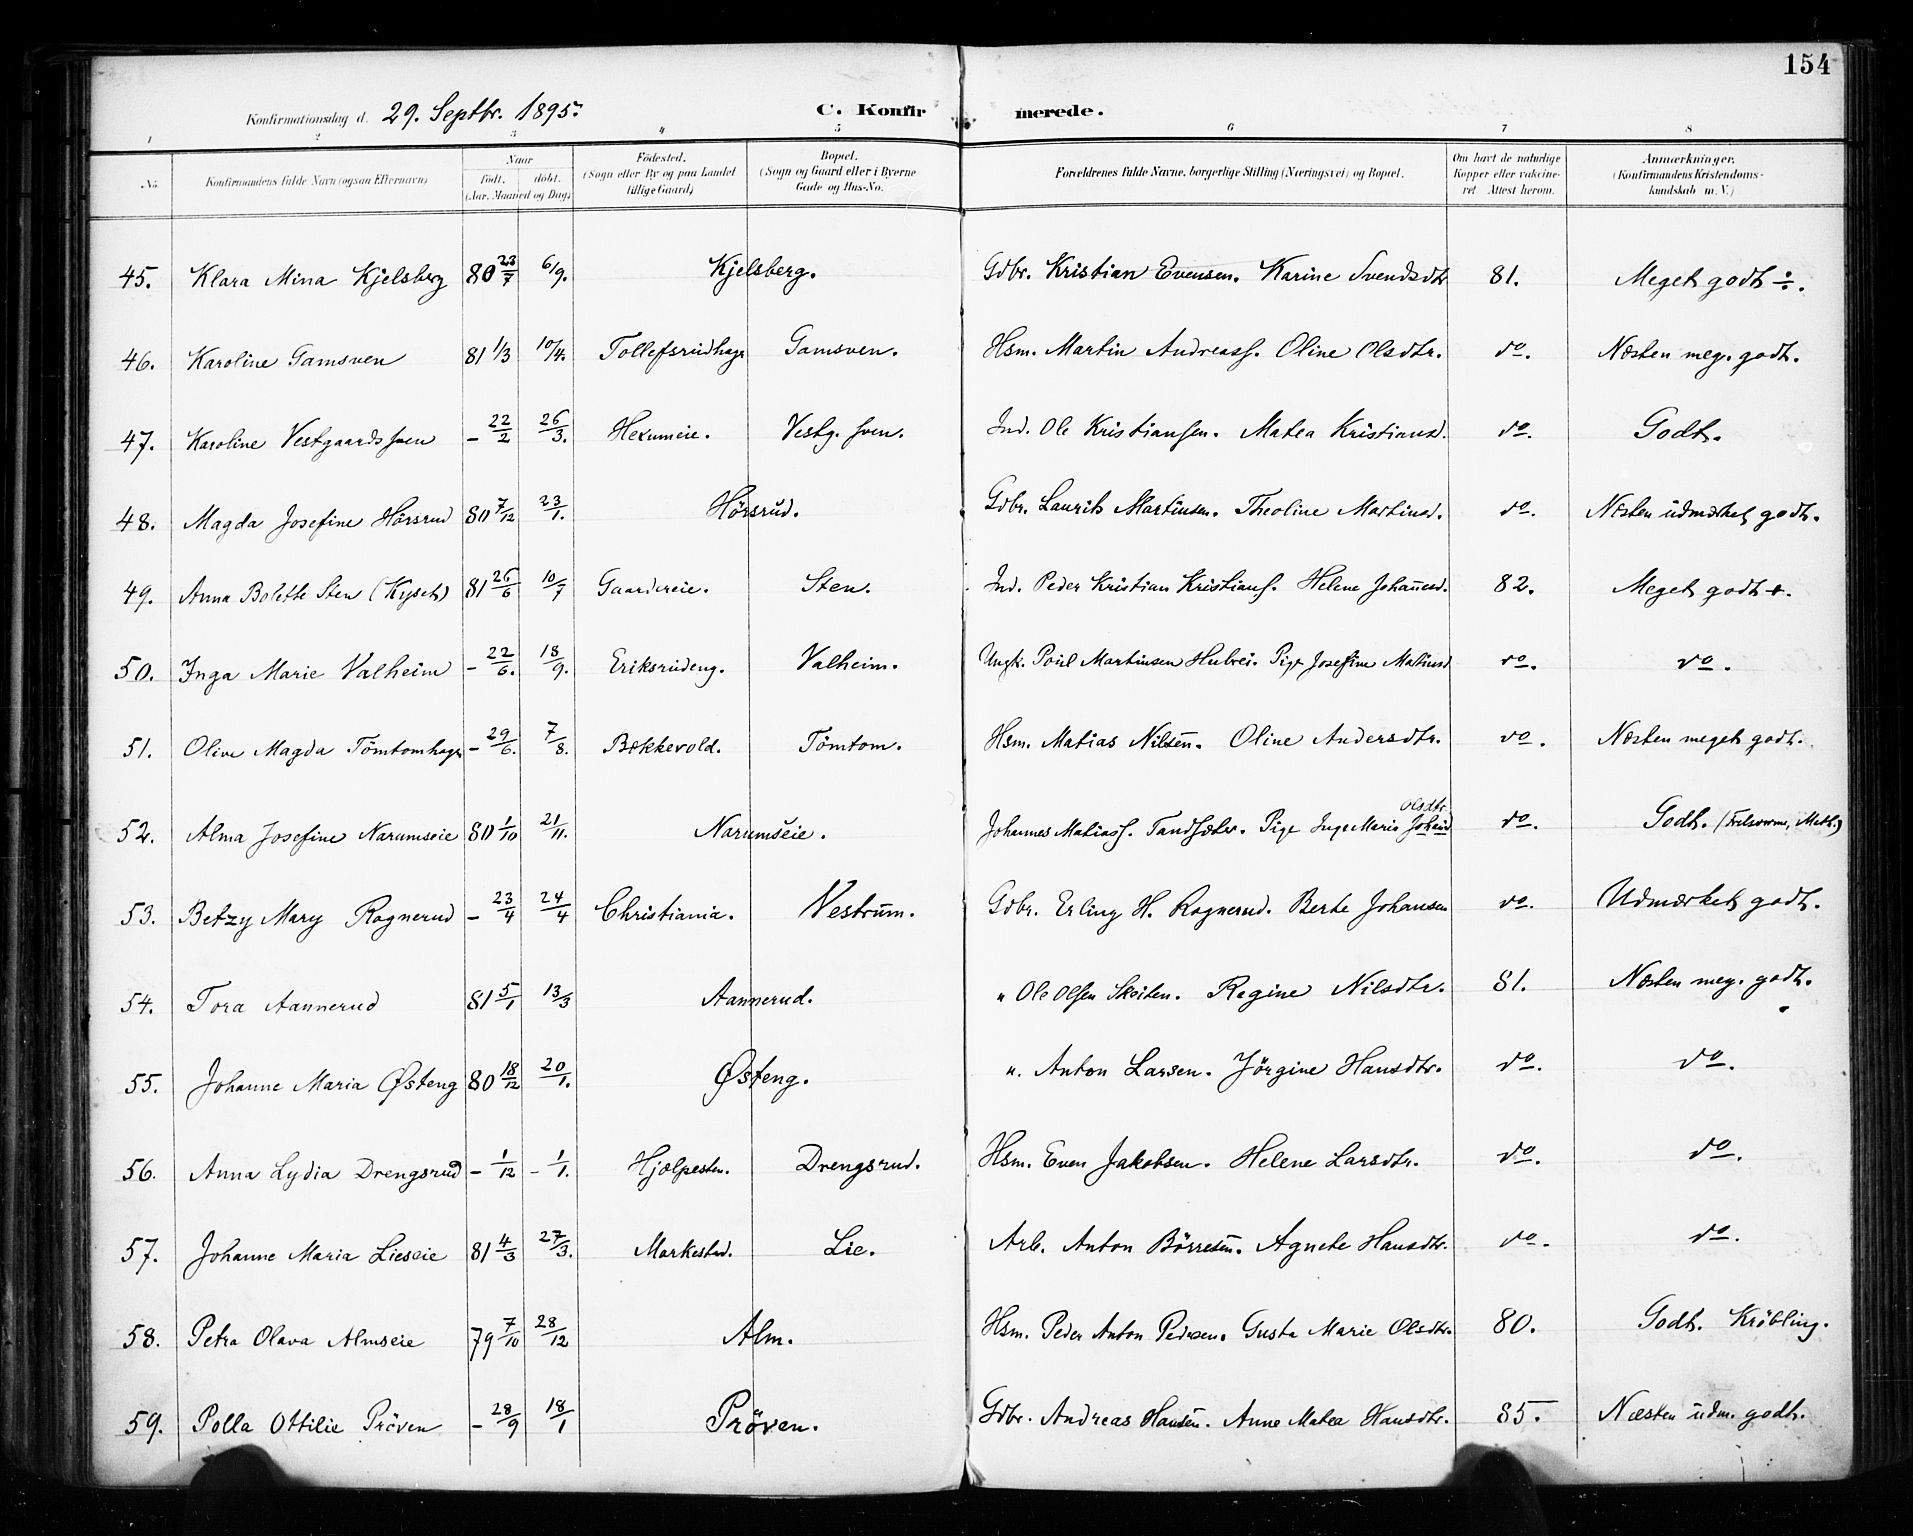 154
Konfirmationsdag d. 29. Septbr. 1895. C. Konfirmerede.
1 2 3 4 5 6 7 8
No. Konfirmandens fulde Navn (ogsaa Efternavn) Naar født. døbt. (Aar, Maaned og Dag) Fødested. (Sogn eller By og paa Landet tillige Gaard) Bopæl. (Sogn og Gaard eller i Byerne Gade og Hus-No. Forældrenes fulde Navne, borgerlige Stilling (Næringsvei) og Bopæl. Om havt de naturlige Kopper eller vakcineret Attest herom. Anmærkninger. (Konfirmandens Kristendomskundskab m. V.)
45. Klara Mina Kjelsberg 80 23/7 6/9. Kjelsberg. Gdbr. Kristian Evensen. Karine Svendsdtr 81. Meget godt ÷.
46. Karoline Gamsven 81 1/3 10/4. Tollefsrudhage Gamsven. Hsm. Martin Andreass. Oline Olsdtr. do. Næsten meg. godt.
47. Karoline Vestgaardssven - 22/2 26/3. Hexumeie. Vestg. sven. Ind. Ole Kristiansen. Matea Kristiansd. do. Godt.
48. Magda Josefine Hørsrud 80 7/12 23/1. Hørsrud. Gdbr. Laurits Martinsen. Theoline Martinsd. do. Næsten udmærket godt.
49. Anna Bolette Sten (Kyset) 81 26/6 10/7 Gaardereie. Sten. Ind. Peder Kristian Kristians. Helene Johannesd. 82. Meget godt +.
50. Inga Marie Valheim - 22/6. 18/9. Eriksrudeng. Valheim. Ungk. Poul Martinsen Hubrei. Pige Josefine Matiusd do. do.
51. Olive Magda Tömtomhagen - 29/6. 7/8. Bækkevold. Tömtom. Hsm. Matias Nilsen. Oline Andersdtr. do. Næsten meget godt.
52. Alma Josefine Narumseie 80 1/10 21/11. Narumseie. Johannes Matiass. Tandsæter. Pige Inge Marie Johansd Olsdtr. do. Godt. (Frelsearme, Meth.)
53. Betzy Mary Rognerud - 23/4 24/4 Christiania. Vestrum. Gdbr. Erling H. Rognerud. Berte Johansen do. Udmærket godt.
54. Tora Aannerud 81 5/1 13/3 Aannerud. " Ole Olsen Skoiten. Regine Nilsdtr. 81. Næsten meg. godt.
55. Johanne Maria Østeng 80 18/12 20/1. Østeng. ". Anton Larsen. Jörgine Hansdtr. do. do.
56. Anna Lydia Drengsrud - 1/12 - 1/1. Hjælpesten. Drengsrud. Hsm. Even Jakobsen. Helene Larsdtr. do. do.
57. Johanne Maria Lieseie 81 4/3 27/3. Markestad. Lie. Arb. Anton Börresen. Agnete Hansdtr. do. do.
58. Petra Olava Almseie 79 7/10 28/12 Alm. Hsm. Peder Anton Pedersen. Gusta Marie Olsdtr. 80. Godt. Kröbling.
59. Polla Ottilie Pröven - 28/9 18/1 Pröven. Gdbr. Andreas Hansen. Anne Matea Hansdtr. 85. Næsten udm. godt.